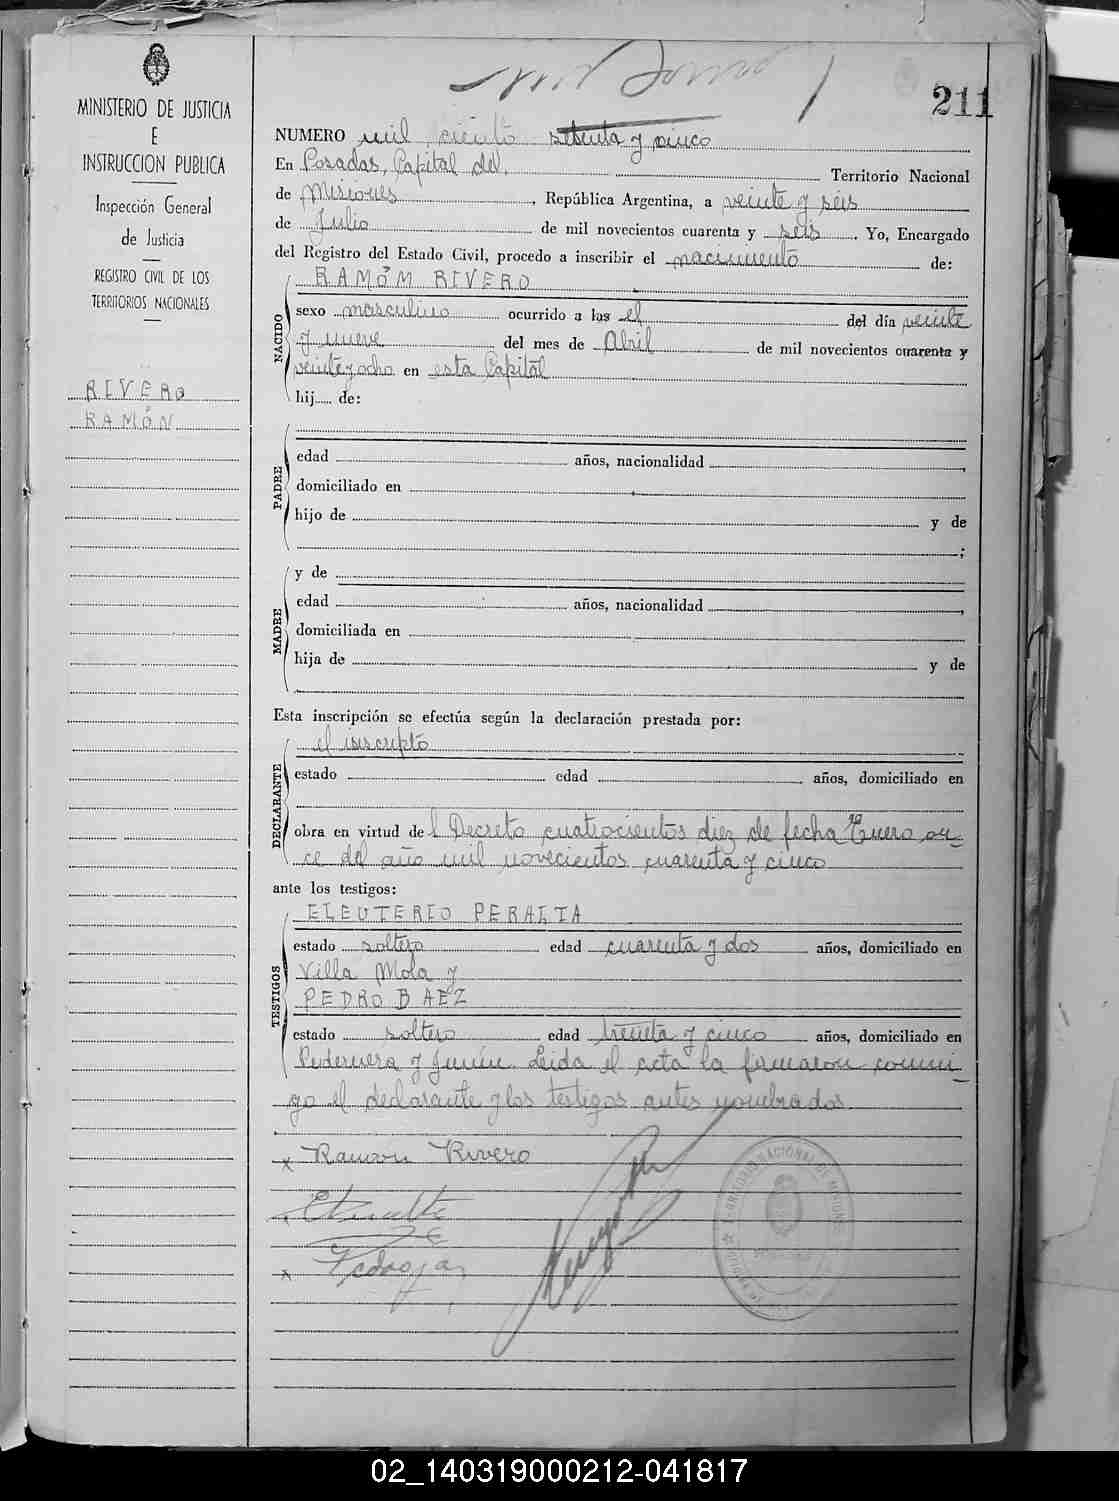 211
MINISTERIO DE JUSTICIA
E
INSTRUCCION PUBLICA
Inspección General
de Justicia
REGISTRO CIVIL DE LOS
TERRITORIOS NACIONALES
RIVERO
RAMÓN
NUMERO mil ciento setenta y cinco
En Posadas, Capital del, Territorio Nacional
de Misiones, República Argentina, a veinte y seis
de Julio de mil novecientos cuarenta y seis. Yo, Encargado
del Registro del Estado Civil, procedo a inscribir el nacimiento de:
NACIDO
RAMÓM RIVERO
sexo masculino ocurrido a las el del día veinte
y nueve del mes de Abril de mil novecientos cuarenta y
veinteyocho en esta Capital
hij de:
PADRE
edad años, nacionalidad ,
domiciliado en
hijo de y de
;
MADRE
y de
edad años, nacionalidad ,
domiciliada en
hija de y de
Esta inscripción se efectúa según la declaración prestada por:
DECLARANTE
el inscripto
estado edad años, domiciliado en
obra en virtud del Decreto cuatrocientos diez de fecha Enero on-
ce del año mil novecientos cuarenta y cinco
ante los testigos:
TESTIGOS
ELEUTERIO PERALTA
estado soltero edad cuarenta y dos años, domiciliado en
Villa Mola y
PEDRO BAEZ
estado soltero edad treinta y cinco años, domiciliado en
Pedernera y Junín. Leida el acta la firmaron conmi-
go el declarante y los testigos antes nombrados
x Ramón Rivero
02_140319000212-041817